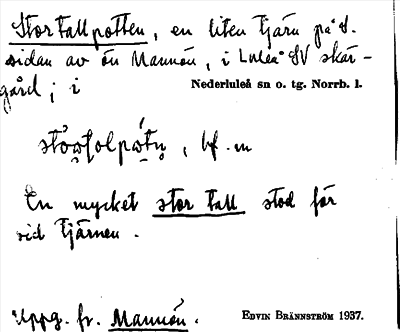 Stortallpotten, en liten tjärn på S.
sidan av ön Mannön, i Luleå SV skär-
gård; i
Nederluleå sn o. tg. Norrb. l.
bf. -n
En mycket stor tall stod för
vid tjärnen.
Uppg. fr. Mannön.
EDVIN BRÄNNSTRÖM 1937.